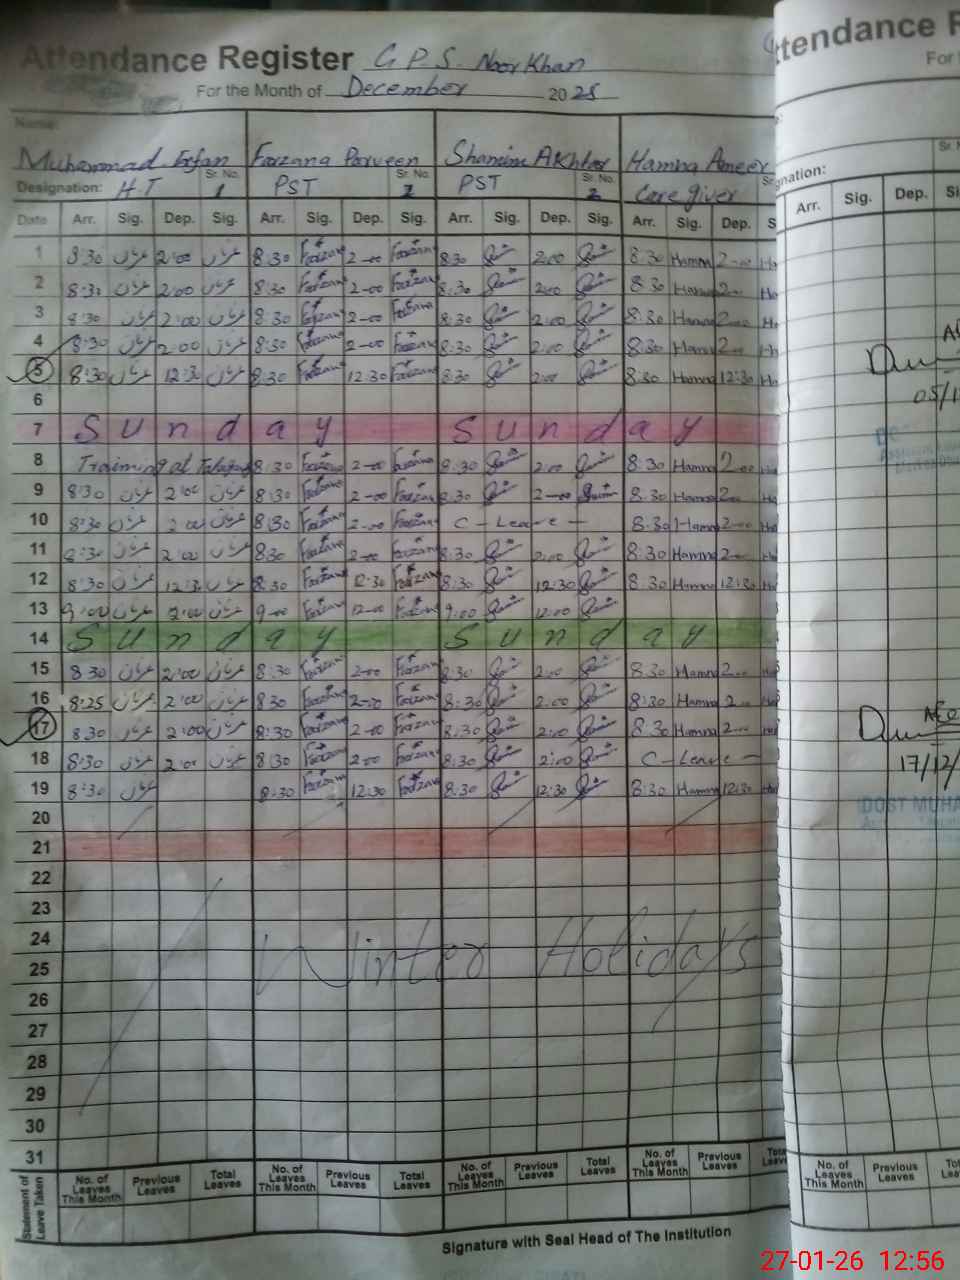 Attendance Register G.P.S. Noor Khan
For the Month of December 2025
Name:
Muhammad Irfan Farzana Parveen Shamim Akhtar Hamna Ameer
Designation: H.T Sr. No. 1 PST Sr. No. 2 PST Sr. No. 2 Care giver
Date Arr. Sig. Dep. Sig. Arr. Sig. Dep. Sig. Arr. Sig. Dep. Sig. Arr. Sig. Dep. S
1 8:30 عرفان 2:00 عرفان 8:30 Farzana 2-00 Farzana 8:30 2:00 8:30 Hamna 2-00 Ha
2 8:30 عرفان 2:00 عرفان 8:30 Farzana 2-00 Farzana 8:30 2:00 8:30 Hamna 2-- Ha
3 8:30 عرفان 2:00 عرفان 8:30 Farzana 2-00 Farzana 8:30 2:00 8:30 Hamna 2-00 Ha
4 8:30 عرفان 2:00 عرفان 8:30 Farzana 2-00 Farzana 8:30 2:00 8:30 Hamna 2-- Ha
5 8:30 عرفان 12:30 عرفان 8:30 Farzana 12:30 Farzana 8:30 2:00 8:30 Hamna 12:30 Ha
6
7 Sunday Sunday
8 Training at 8:30 Farzana 2-00 Farzana 8:30 2:00 8:30 Hamna 2-00 Ha
9 8:30 عرفان 2:00 عرفان 8:30 Farzana 2-00 Farzana 8:30 2-00 8:30 Hamna 2-- Ha
10 8:30 عرفان 2:00 عرفان 8:30 Farzana 2-00 Farzana C - Leave - 8:30 Hamna 2-00 Ha
11 8:30 عرفان 2:00 عرفان 8:30 Farzana 2-00 Farzana 8:30 2:00 8:30 Hamna 2-- Ha
12 8:30 عرفان 12:30 عرفان 8:30 Farzana 12:30 Farzana 8:30 12:30 8:30 Hamna 12:30 Ha
13 9:00 عرفان عرفان 9-00 Farzana 12-00 Farzana 9:00 12:00
14 Sunday Sunday
15 8:30 عرفان 2:00 عرفان 8:30 Farzana 2-00 Farzana 8:30 2:00 8:30 Hamna 2-- Ha
16 8:25 عرفان 2:00 عرفان 8:30 Farzana 2-00 Farzana 8:30 2:00 8:30 Hamna 2-- Ha
17 8:30 عرفان 2:00 عرفان 8:30 Farzana 2-00 Farzana 8:30 2:00 8:30 Hamna 2-00 Ha
18 8:30 عرفان 2:00 عرفان 8:30 Farzana 2-00 Farzana 8:30 2:00 C - Leave -
19 8:30 عرفان 8:30 Farzana 12:30 Farzana 8:30 12:30 8:30 Hamna 12:30 Ha
20
21
22
23
24 Winter Holidays
25
26
27
28
29
30
31
Statement of Leave Taken
No. of Leaves This Month Previous Leaves Total Leaves No. of Leaves This Month Previous Leaves Total Leaves No. of Leaves This Month Previous Leaves Total Leaves No. of Leaves This Month Previous Leaves
Signature with Seal Head of The Institution
ttendance R
For
gnation:
Arr. Sig. Dep. Si
05/1
17/12/
DOST MUHA
No. of Leaves This Month Previous Leaves
27-01-26 12:56